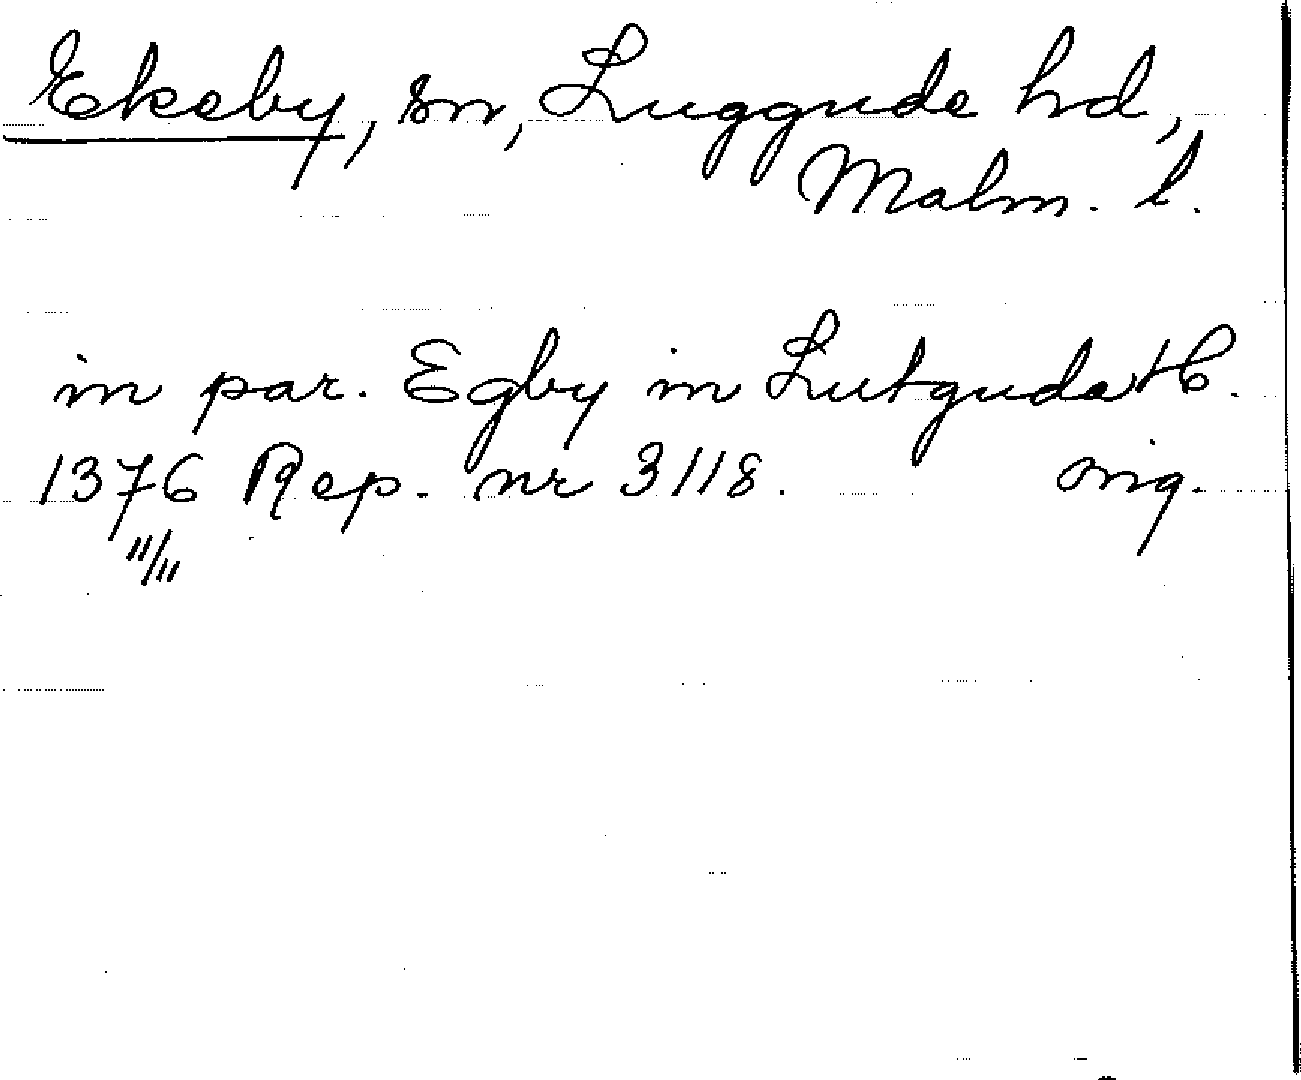 Ekeby, sn, Luggude hd,
Malm. l.
in par. Egby in Lutguda H.
1376 Rep. nr 3118. orig.
11/11